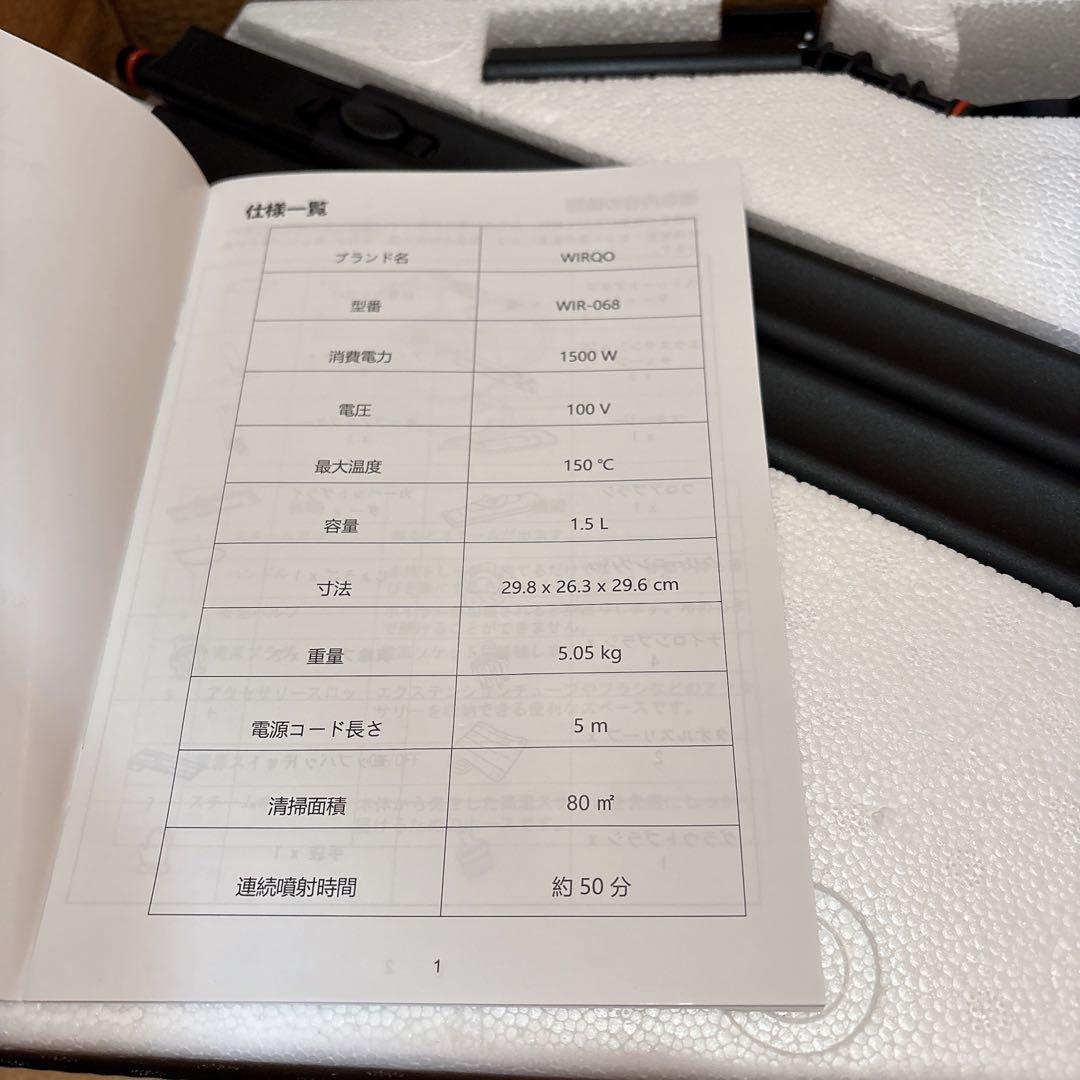 仕様一覧
ブランド名 WIRQO
型番 WIR-068
消費電力 1500 W
電圧 100 V
最大温度 150 ℃
容量 1.5 L
寸法 29.8 x 26.3 x 29.6 cm
重量 5.05 kg
電源コード長さ 5 m
清掃面積 80 ㎡
連続噴射時間 約 50 分
1